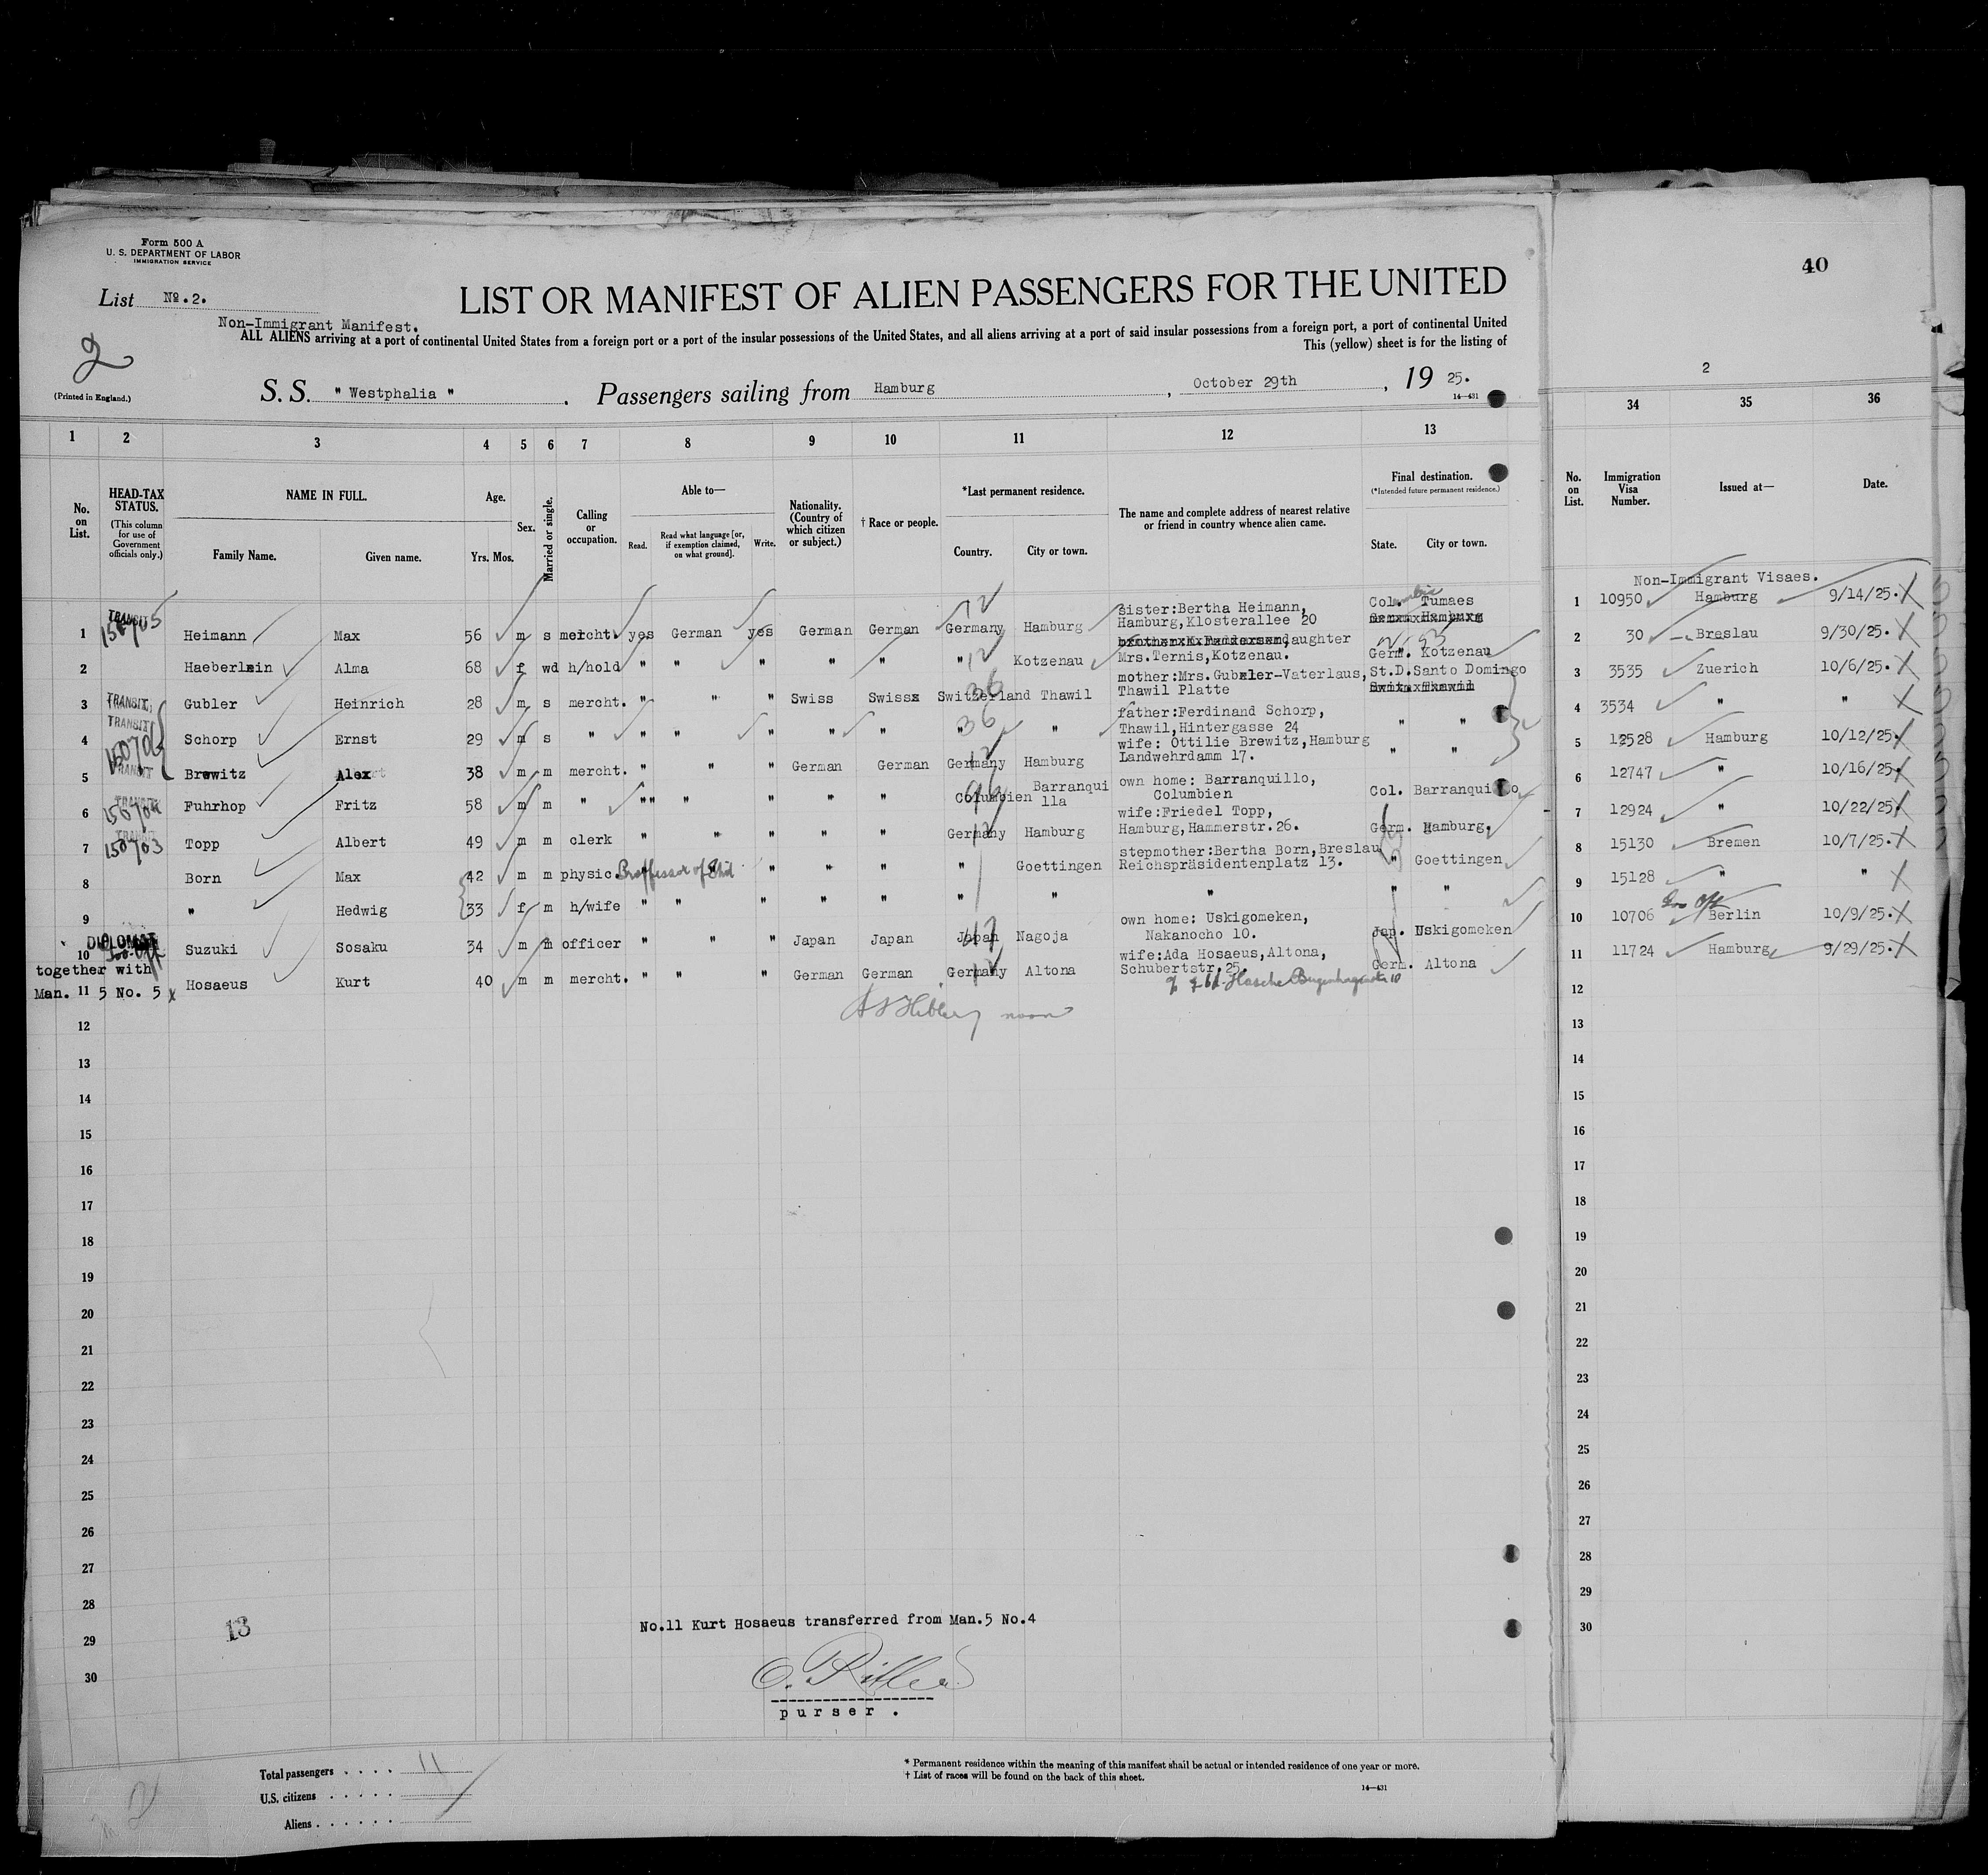 Form 500 A
U. S. DEPARTMENT OF LABOR
IMMIGRATION SERVICE
40
List No.2.
LIST OR MANIFEST OF ALIEN PASSENGERS FOR THE UNITED
Non-Immigrant Manifest.
ALL ALIENS arriving at a port of continental United States from a foreign port or a port of the insular possessions of the United States, and all aliens arriving at a port of said insular possessions from a foreign port, a port of continental United
This (yellow) sheet is for the listing of
2
2
(Printed in England.)
S. S. " Westphalia " . Passengers sailing from Hamburg , October 29th , 19 25.
14—431
1 2 3 4 5 6 7 8 9 10 11 12 13 34 35 36
No. on List.
HEAD-TAX STATUS.
(This column for use of Government officials only.)
NAME IN FULL.
Family Name. Given name.
Age.
Yrs. Mos.
Sex.
Married or single.
Calling or occupation.
Able to—
Read. Read what language [or, if exemption claimed, on what ground]. Write.
Nationality. (Country of which citizen or subject.)
† Race or people.
*Last permanent residence.
Country. City or town.
The name and complete address of nearest relative or friend in country whence alien came.
Final destination.
(*Intended future permanent residence.)
State. City or town.
No. on List.
Immigration Visa Number.
Issued at—
Date.
Non-Immigrant Visaes.
1 TRANSIT 156705 Heimann Max 56 m s mercht. yes German yes German German Germany Hamburg sister:Bertha Heimann, Hamburg,Klosterallee 20 Col. Tumaes 1 10950 Hamburg 9/14/25.
2 Haeberlein Alma 68 f wd h/hold " " " " " " Kotzenau daughter Mrs.Ternis,Kotzenau. Germ. Kotzenau 2 30 Breslau 9/30/25.
3 TRANSIT Gubler Heinrich 28 m s mercht. " " " Swiss Swiss Switzerland Thawil mother:Mrs.Gubler-Vaterlaus, Thawil Platte St.D.Santo Domingo 3 3535 Zuerich 10/6/25.
4 TRANSIT Schorp Ernst 29 m s " " " " " " " " father:Ferdinand Schorp, Thawil,Hintergasse 24 " " 4 3534 " "
5 TRANSIT Brewitz Alex 38 m m mercht. " " " German German Germany Hamburg wife: Ottilie Brewitz,Hamburg Landwehrdamm 17. " " 5 12528 Hamburg 10/12/25.
6 TRANSIT Fuhrhop Fritz 58 m m " "" " " " " Columbien Barranqui lla own home: Barranquillo, Columbien Col. Barranquillo 6 12747 " 10/16/25.
7 TRANSIT 156703 Topp Albert 49 m m clerk " " " " " Germany Hamburg wife:Friedel Topp, Hamburg,Hammerstr.26. Germ. Hamburg. 7 12924 " 10/22/25.
8 Born Max 42 m m physic. Proffessor of " " " " Goettingen stepmother:Bertha Born,Breslau Reichspräsidentenplatz 13. " Goettingen 8 15130 Bremen 10/7/25.
9 " Hedwig 33 f m h/wife " " " " " " " " " " 9 15128 " "
10 DIPLOMAT Suzuki Sosaku 34 m m officer " " " Japan Japan Japan Nagoja own home: Uskigomeken, Nakanocho 10. Jap. Uskigomeken 10 10706 Berlin 10/9/25.
together with
Man. 11 5 No. 5 Hosaeus Kurt 40 m m mercht. " " " German German Germany Altona wife:Ada Hosaeus,Altona, Schubertstr.25. Germ. Altona 11 11724 Hamburg 9/29/25.
12 12
13 13
14 14
15 15
16 16
17 17
18 18
19 19
20 20
21 21
22 22
23 23
24 24
25 25
26 26
27 27
28 28
29 29
30 30
13
No.11 Kurt Hosaeus transferred from Man.5 No.4
purser .
Total passengers . . . . 11
U.S. citizens . . . . .
Aliens . . . . . .
* Permanent residence within the meaning of this manifest shall be actual or intended residence of one year or more.
† List of races will be found on the back of this sheet.
14—431